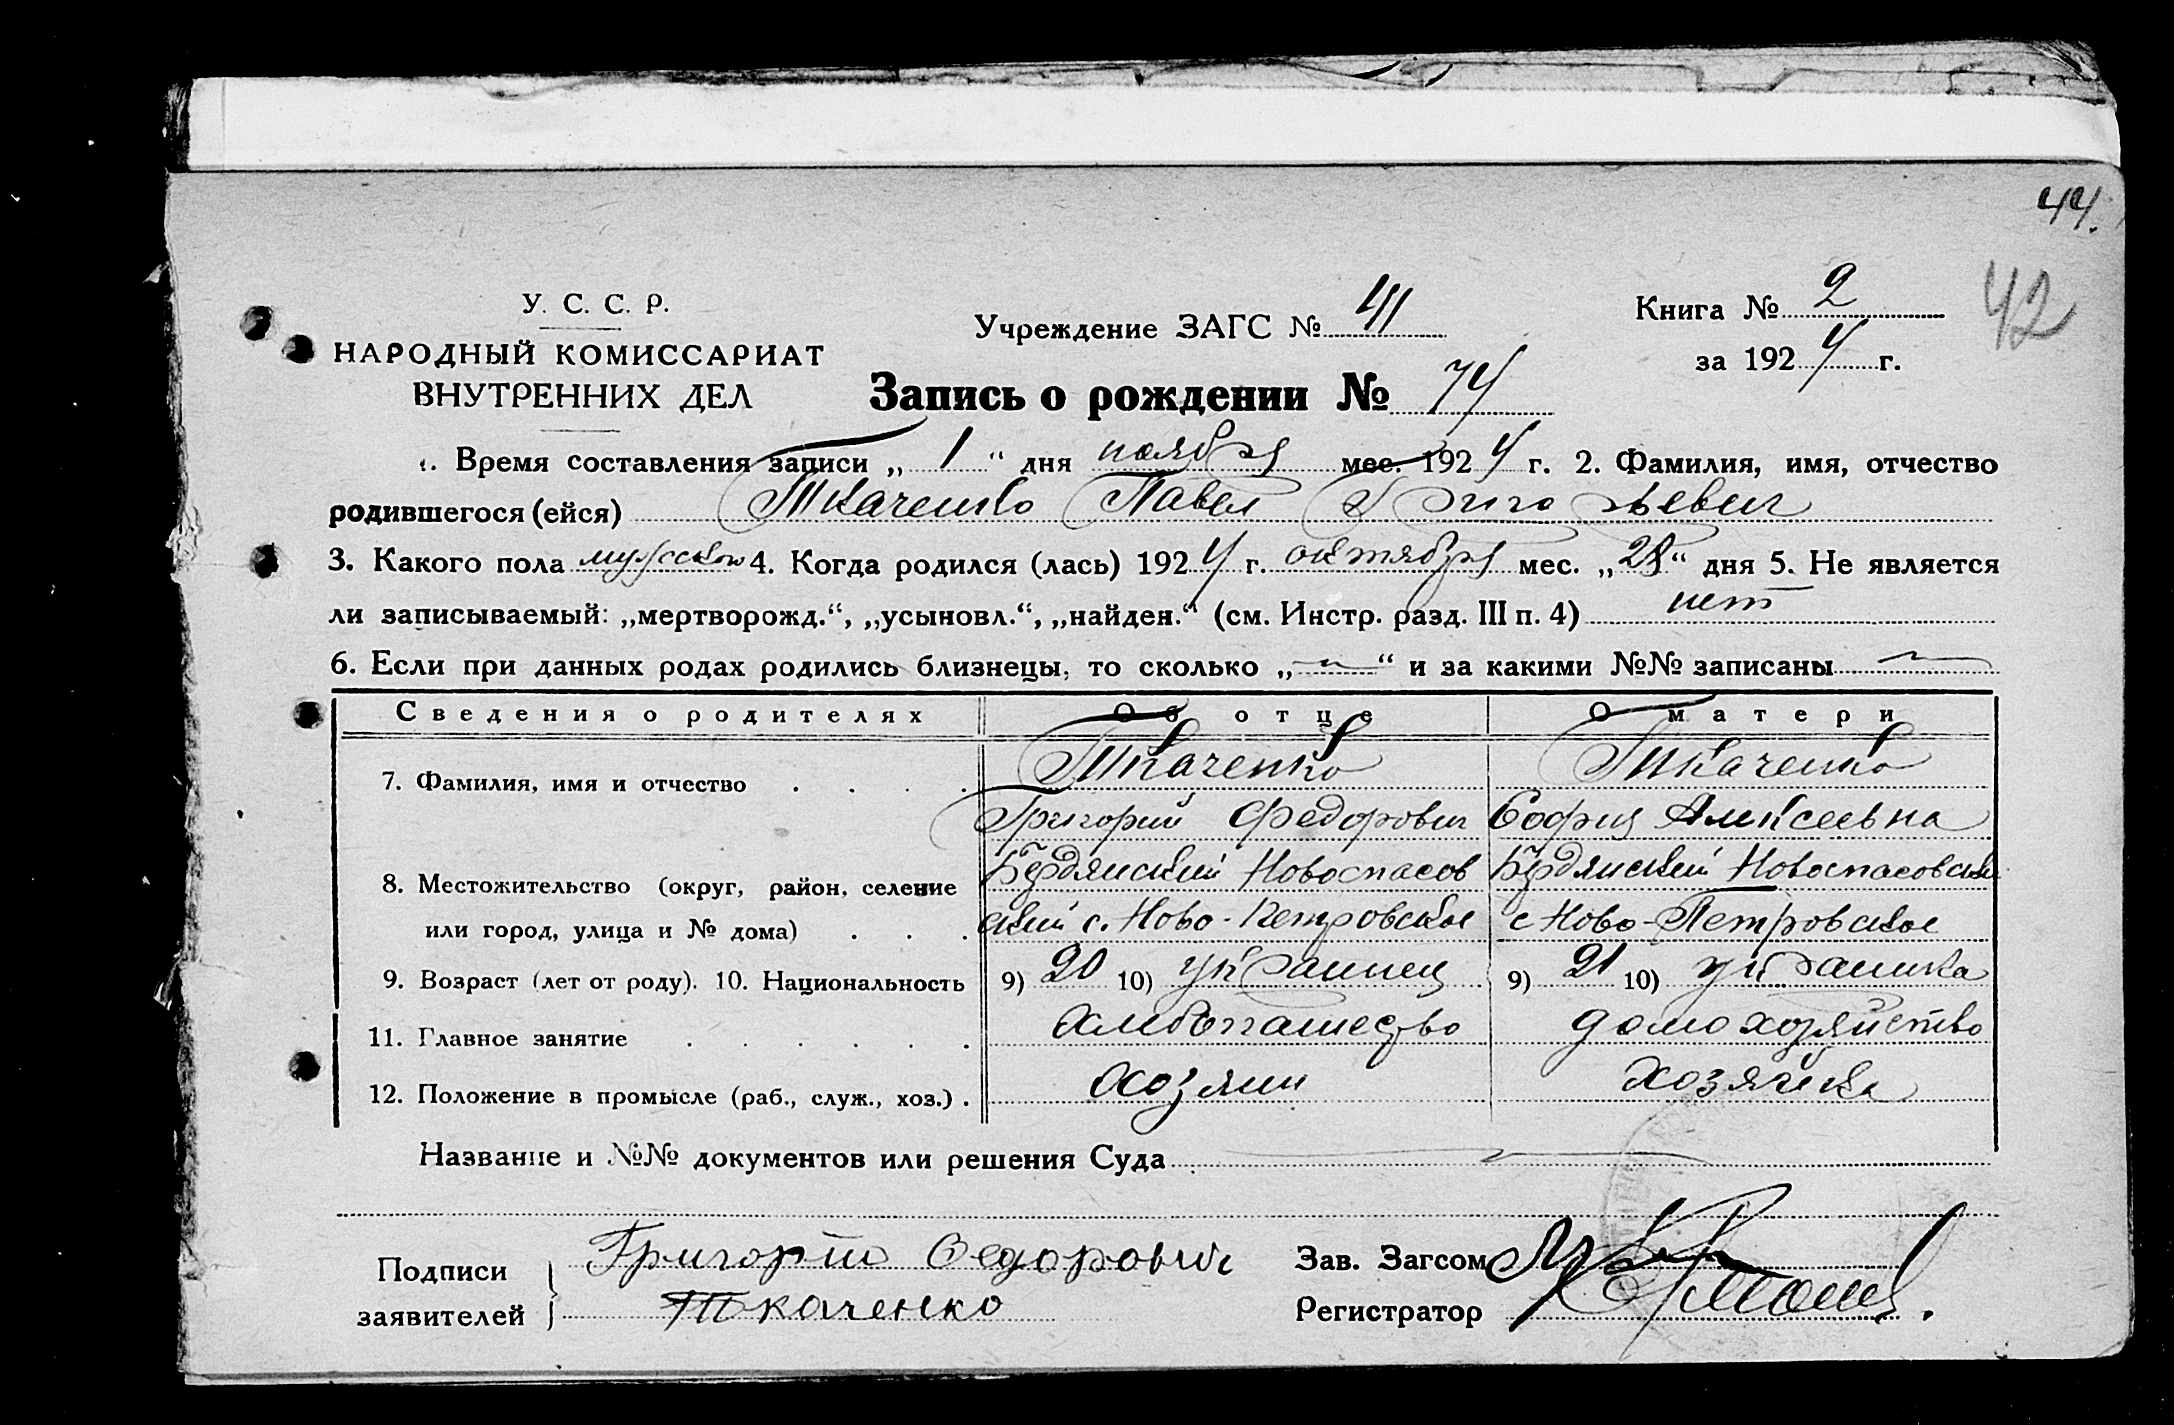 44.
42
У. С. С. Р.
НАРОДНЫЙ КОМИССАРИАТ
ВНУТРЕННИХ ДЕЛ
Учреждение ЗАГС № 41
Книга № 2
за 1924 г.
Запись о рождении № 74
1. Время составления записи „1“ дня ноября мес. 1924 г. 2. Фамилия, имя, отчество
родившегося (ейся) Ткаченко Павел Григорьевич
3. Какого пола мужского 4. Когда родился (лась) 1924 г. октября мес. „28“ дня 5. Не является
ли записываемый: „мертворожд.“, „усыновл.“, „найден.“ (см. Инстр. разд. III п. 4) нет
6. Если при данных родах родились близнецы, то сколько „—“ и за какими №№ записаны —
Сведения о родителях Об отце О матери
7. Фамилия, имя и отчество . . . . Ткаченко Ткаченко
Григорий Федорович София Алексеевна
8. Местожительство (округ, район, селение Бердянский Новоспасов Бердянский Новоспасовский
или город, улица и № дома) . . . ский с. Ново-Петровское с Ново-Петровское
9. Возраст (лет от роду). 10. Национальность 9) 20 10) украинец 9) 21 10) украинка
11. Главное занятие . . . . . . Хлебопашество домохозяйство
12. Положение в промысле (раб., служ., хоз.) . хозяин хозяйка
Название и №№ документов или решения Суда —
Подписи заявителей Григорій Федорович
Ткаченко
Зав. Загсом
Регистратор